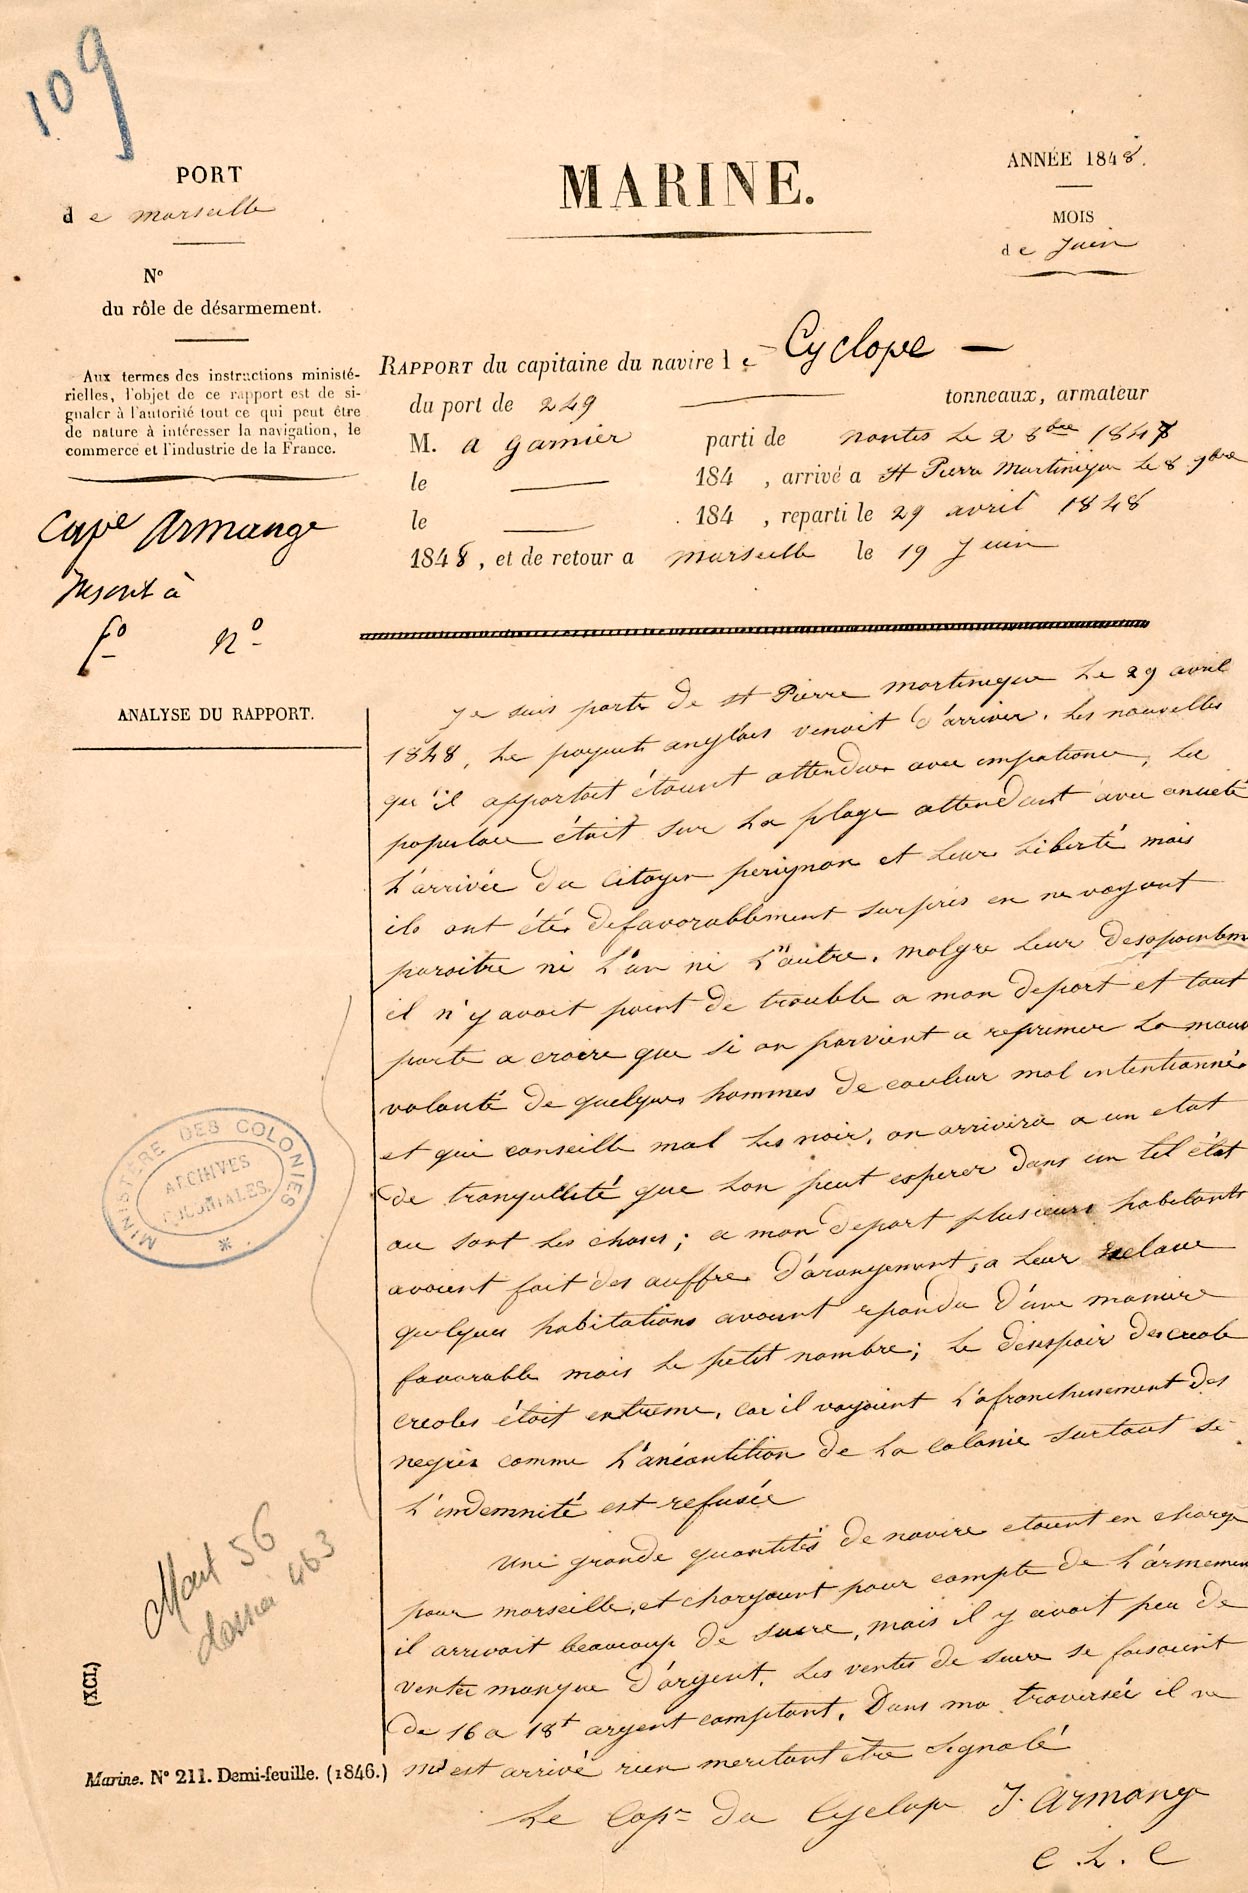 109
PORT
de marseille
N°
du rôle de désarmement.
Aux termes des instructions ministé-
rielles, l'objet de ce rapport est de si-
gnaler à l'autorité tout ce qui peut être
de nature à intéresser la navigation, le
commerce et l'industrie de la France.
Cape Armange
Inscrit à
f° n°
ANALYSE DU RAPPORT.
MARINE.
ANNÉE 1848.
MOIS
de Juin
RAPPORT du capitaine du navire le Cyclope —
du port de 249 tonneaux, armateur
M. a garnier parti de nantes le 2 8bre 1847
le 184 , arrivé a St Pierre Martinique le 8 9bre
le 184 , reparti le 29 avril 1848
1848, et de retour a marseille le 19 Juin
Je suis parti de St Pierre martinique le 29 avril
1848, le paquet anglais venoit d'arriver. les nouvelles
qu'il apportoit étoient attendue avec impatience, la
populace étoit sur la plage attendant avec anxieté
l'arrivée du citoyen perignon et leur liberté mais
ils ont étés defavorablement surpris en ne voyant
paroitre ni l'un ni l'autre. malgre leur desapointem
il n'y avoit point de trouble a mon depart et tout
porte a croire que si on parvient a reprimer la mauv
volonté de quelques hommes de couleur mal intentionnés
et qui conseille mal les noir, on arrivera a un etat
de tranquilité que lon peut esperer dans un tel état
ou sont les choses; a mon depart plusieurs habitants
avoient fait des auffre d'arangement, a leur esclave
quelques habitations avoient repondu d'une maniere
favorable mais le petit nombre; le desespoir des creole
creoles étoit extreme, car il voyoient l'afranchissement des
negres comme l'anéantition de la colonie surtout si
l'indemnité est refusée
Une grande quantités de navire etoient en charge
pour marseille, et chargeoient pour compte de l'armemen
il arrivoit beaucoup de sucre, mais il y avoit peu de
ventes manque d'argent. les ventes de sucre se faisoient
de 16 a 18f argent comptant. Dans ma traversée il ne
m'est arrivé rien meritant être signalé
Le Capne du Cyclope J. Armange
C. L. C
MINISTERE DES COLONIES
ARCHIVES
COLONIALES.
Mart 56
dossier 463
(XCI.)
Marine. N° 211. Demi-feuille. (1846.)